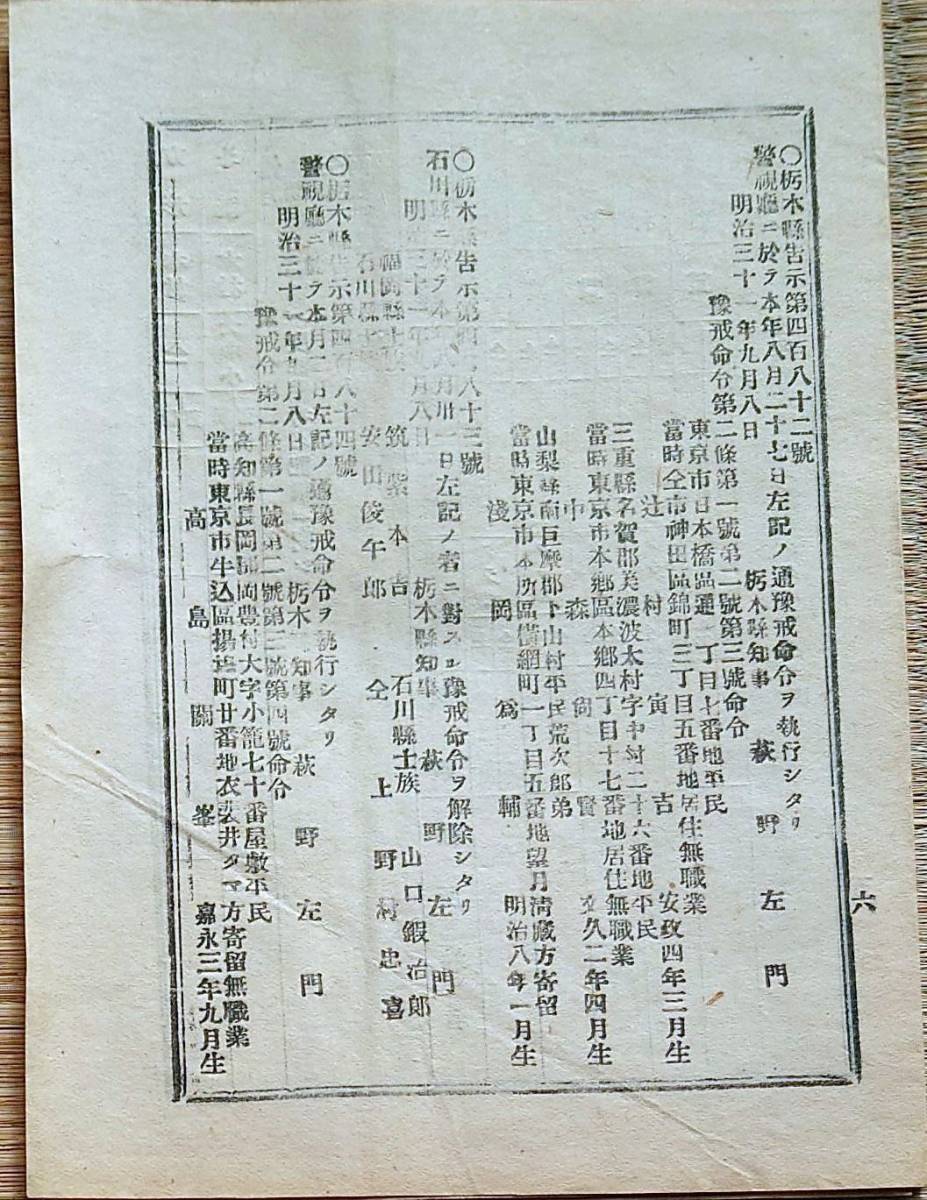 六
〇栃木縣告示第四百八十二號
警視廳ニ於テ本年八月二十七日左記ノ通豫戒命令ヲ執行シタリ
明治三十一年九月八日
栃木縣知事 萩野左門
豫戒命令第二條第一號第二號第三號命令
東京市日本橋區通一丁目七番地平民
當時仝市神田區錦町三丁目五番地居住無職業
辻村寅吉
安政四年三月生
三重縣名賀郡美濃波太村字中村二十六番地平民
當時東京市本郷區本郷四丁目十七番地居住無職業
中森尙賢
文久二年四月生
山梨縣南巨摩郡下山村平民荒次郎弟
當時東京市本所區橫網町一丁目五番地望月淸藏方寄留
淺岡爲輔
明治八年一月生
〇栃木縣告示第四百八十三號
石川縣ニ於テ本年八月卅一日左記ノ者ニ對スル豫戒命令ヲ解除シタリ
明治三十一年九月八日
栃木縣知事 萩野左門
石川縣士族 山口鍜治郎
福岡縣士族 筑紫本吉
仝上 野村忠喜
石川縣士族 安田俊午郎
〇栃木縣告示第四百八十四號
警視廳ニ於テ本月二日左記ノ通豫戒命令ヲ執行シタリ
明治三十一年九月八日
栃木縣知事 萩野左門
豫戒命令第二條第一號第二號第三號第四號命令
高知縣長岡郡岡豊村大字小籠七十番屋敷平民
當時東京市牛込區揚塲町廿番地衣裴井タマ方寄留無職業
高島關峯
嘉永三年九月生